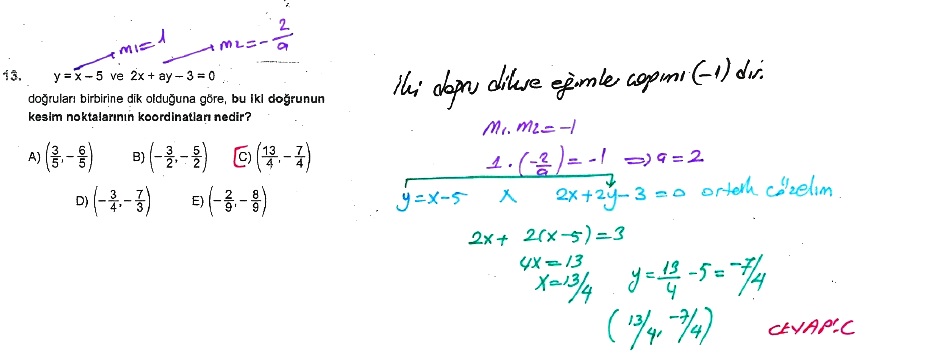 m₁=1
m₂=-2/a
13. y = x – 5 ve 2x + ay – 3 = 0
doğruları birbirine dik olduğuna göre, bu iki doğrunun
kesim noktalarının koordinatları nedir?
A) (3/5, -6/5) B) (-3/2, -5/2) C) (13/4, -7/4)
D) (-3/4, -7/3) E) (-2/9, -8/9)
İki doğru dikse eğimler çarpımı (-1) dir.
m₁.m₂=-1
1.(-2/a)=-1 ⇒ a=2
y=x-5 ∧ 2x+2y-3=0 ortak çözelim
2x+ 2(x-5)=3
4x=13
x=13/4 y=13/4 -5=-7/4
(13/4, -7/4) CEVAP:C